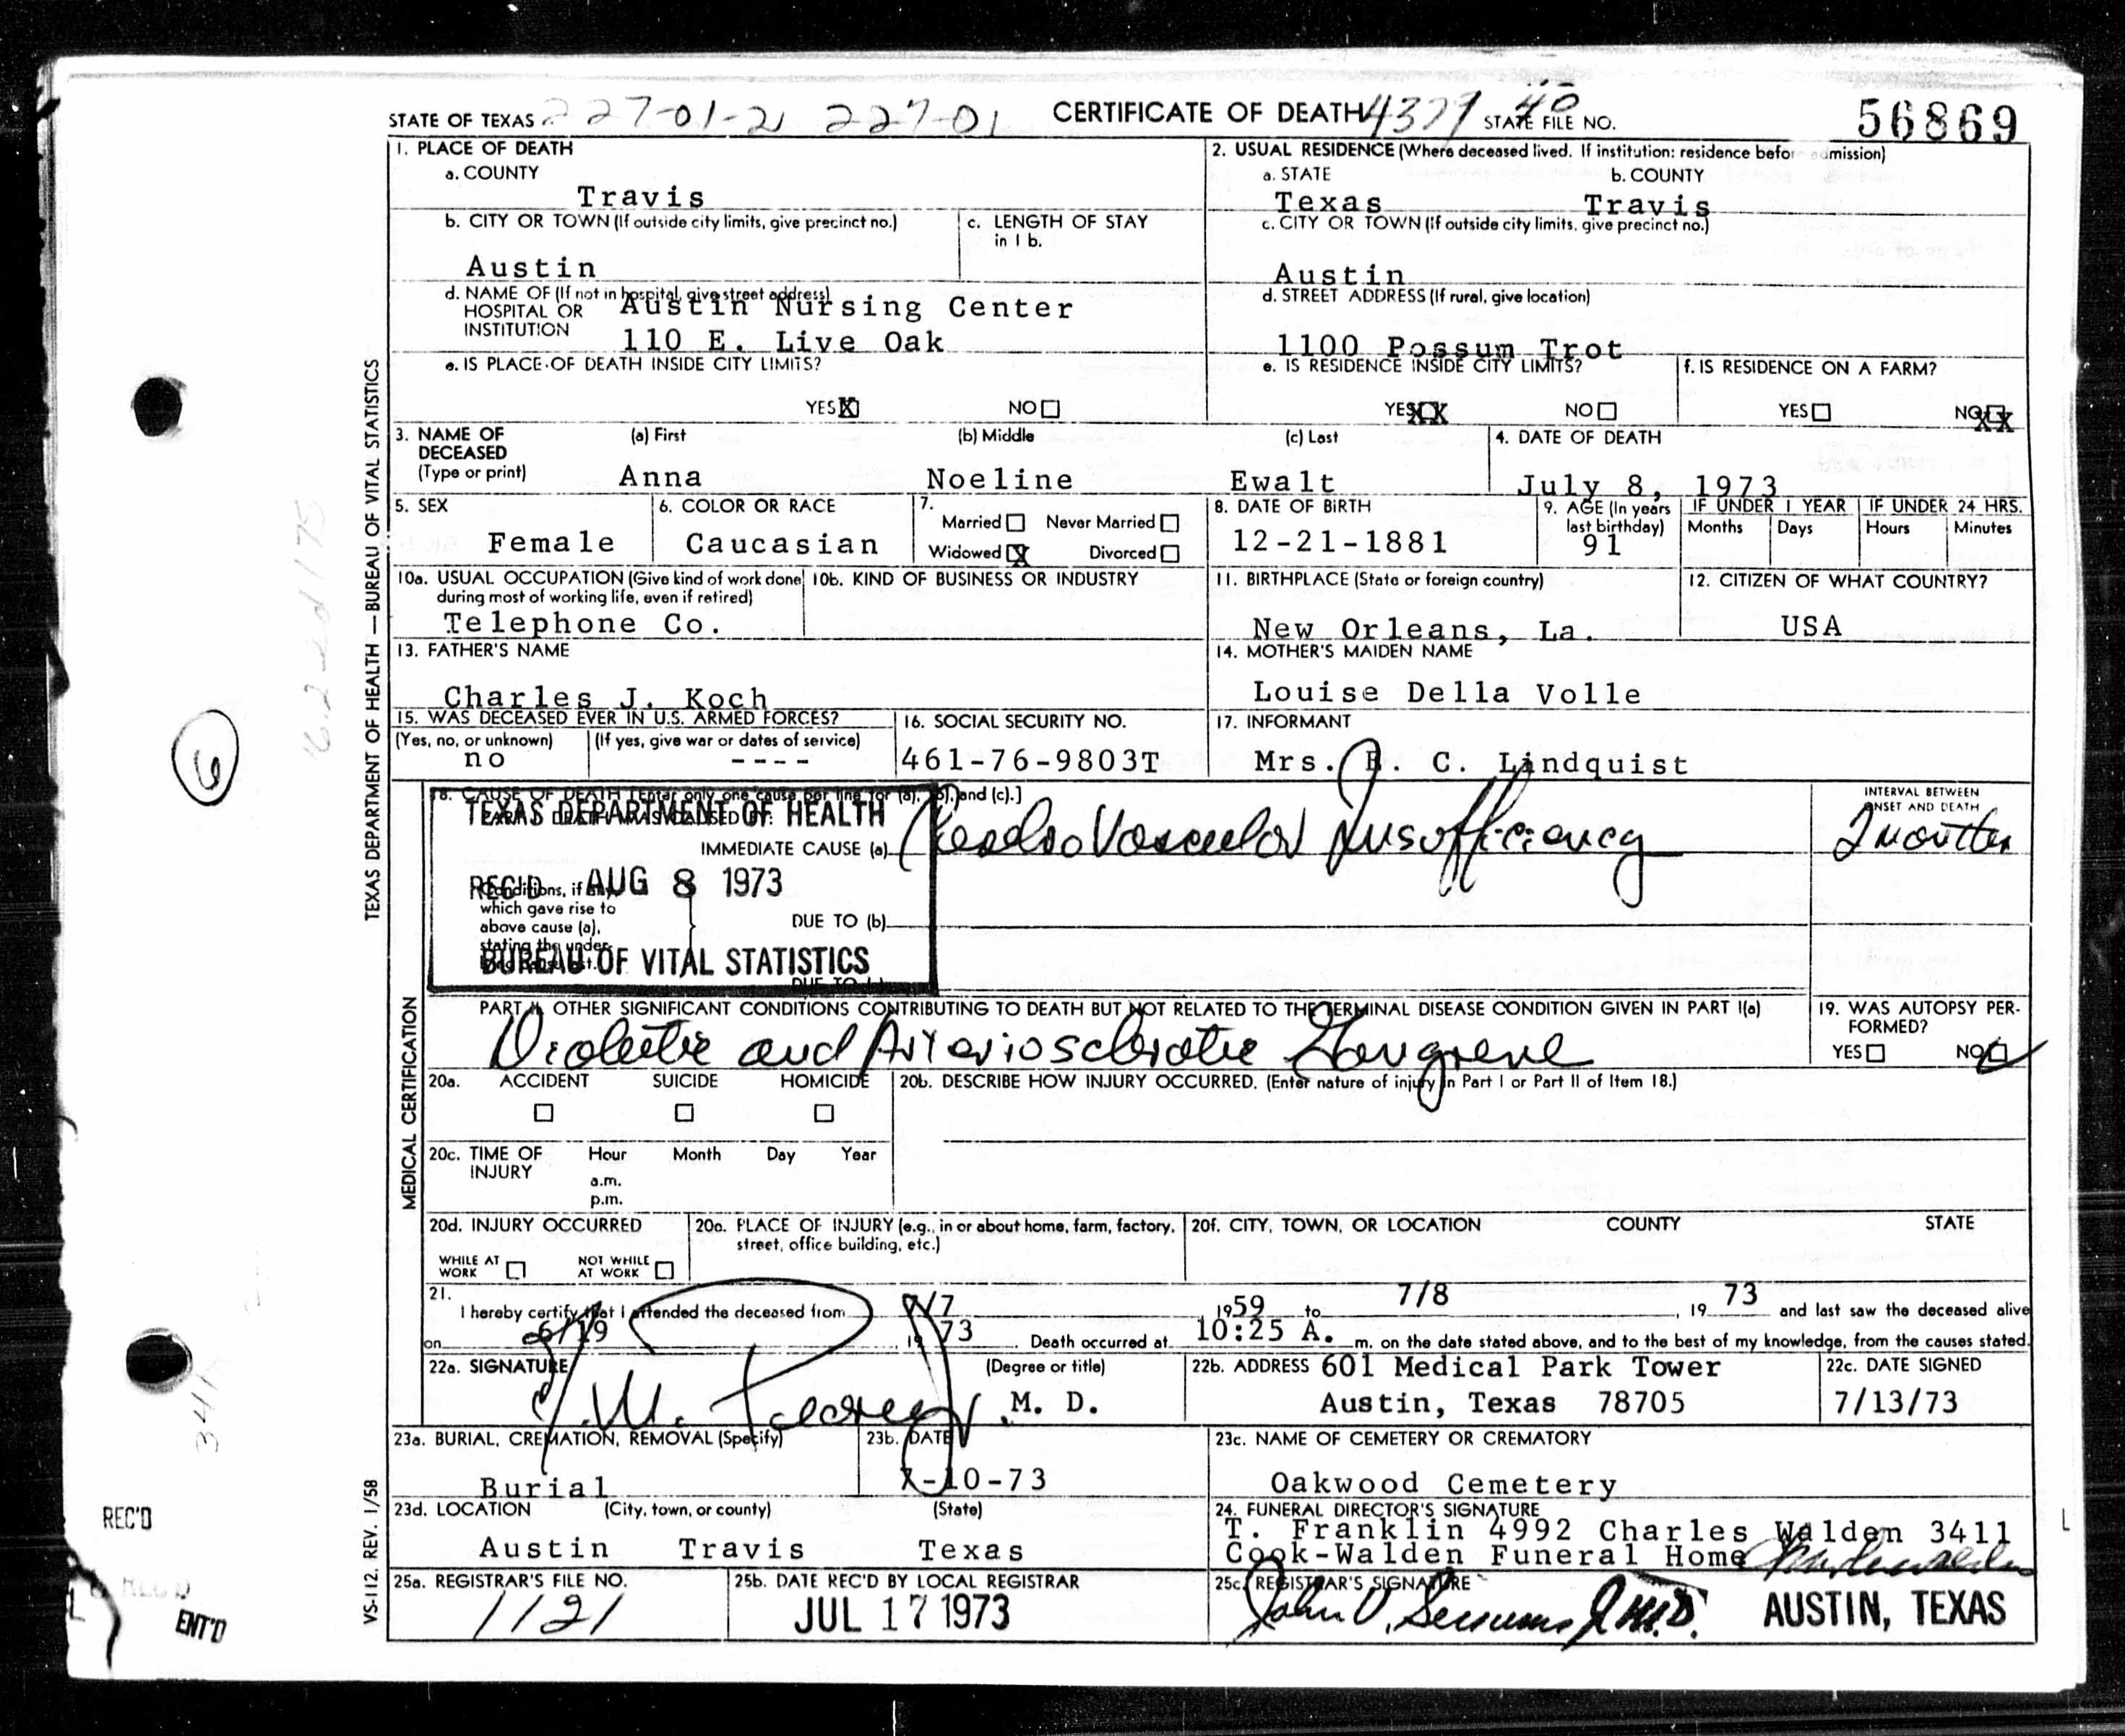 STATE OF TEXAS 227-01-2 227-01 CERTIFICATE OF DEATH 4379 40 STATE FILE NO. 56869
1. PLACE OF DEATH
a. COUNTY
Travis
b. CITY OR TOWN (If outside city limits, give precinct no.)
Austin
c. LENGTH OF STAY
in 1 b.
d. NAME OF (If not in hospital, give street address)
HOSPITAL OR
INSTITUTION
Austin Nursing Center
110 E. Live Oak
e. IS PLACE OF DEATH INSIDE CITY LIMITS?
YES X NO
2. USUAL RESIDENCE (Where deceased lived. If institution: residence before admission)
a. STATE
Texas
b. COUNTY
Travis
c. CITY OR TOWN (if outside city limits, give precinct no.)
Austin
d. STREET ADDRESS (If rural, give location)
1100 Possum Trot
e. IS RESIDENCE INSIDE CITY LIMITS?
YES XX NO
f. IS RESIDENCE ON A FARM?
YES NO XX
3. NAME OF
DECEASED
(Type or print)
(a) First
Anna
(b) Middle
Noeline
(c) Last
Ewalt
4. DATE OF DEATH
July 8, 1973
5. SEX
Female
6. COLOR OR RACE
Caucasian
7.
Married Never Married
Widowed X Divorced
8. DATE OF BIRTH
12-21-1881
9. AGE (In years
last birthday)
91
IF UNDER 1 YEAR
Months Days
IF UNDER 24 HRS.
Hours Minutes
10a. USUAL OCCUPATION (Give kind of work done
during most of working life, even if retired)
Telephone Co.
10b. KIND OF BUSINESS OR INDUSTRY
11. BIRTHPLACE (State or foreign country)
New Orleans, La.
12. CITIZEN OF WHAT COUNTRY?
USA
13. FATHER'S NAME
Charles J. Koch
14. MOTHER'S MAIDEN NAME
Louise Della Volle
15. WAS DECEASED EVER IN U.S. ARMED FORCES?
(Yes, no, or unknown)
no
(If yes, give war or dates of service)
----
16. SOCIAL SECURITY NO.
461-76-9803T
17. INFORMANT
Mrs. C. Lindquist
18. CAUSE OF DEATH [Enter only one cause per line for (a), (b), and (c).]
TEXAS DEPARTMENT OF HEALTH
IMMEDIATE CAUSE (a) Vascular Insufficiency
INTERVAL BETWEEN
ONSET AND DEATH
2 months
REC'D AUG 8 1973
Conditions, if any,
which gave rise to
above cause (a),
stating the under-
DUE TO (b)
BUREAU OF VITAL STATISTICS
DUE TO
PART II. OTHER SIGNIFICANT CONDITIONS CONTRIBUTING TO DEATH BUT NOT RELATED TO THE TERMINAL DISEASE CONDITION GIVEN IN PART 1(a)
Diabetic and Arteriosclerotic Gangrene
19. WAS AUTOPSY PER-
FORMED?
YES NO
20a. ACCIDENT SUICIDE HOMICIDE
20b. DESCRIBE HOW INJURY OCCURRED. (Enter nature of injury in Part I or Part II of Item 18.)
20c. TIME OF
INJURY
Hour Month Day Year
a.m.
p.m.
20d. INJURY OCCURRED
WHILE AT
WORK
NOT WHILE
AT WORK
20e. PLACE OF INJURY (e.g., in or about home, farm, factory,
street, office building, etc.)
20f. CITY, TOWN, OR LOCATION COUNTY STATE
21.
I hereby certify that I attended the deceased from 7/7 1959 to 7/8, 19 73 and last saw the deceased alive
on 6/19, 19 73. Death occurred at 10:25 A. m. on the date stated above, and to the best of my knowledge, from the causes stated.
22a. SIGNATURE
(Degree or title)
M. D.
22b. ADDRESS 601 Medical Park Tower
Austin, Texas 78705
22c. DATE SIGNED
7/13/73
23a. BURIAL, CREMATION, REMOVAL (Specify)
Burial
23b. DATE
7-10-73
23c. NAME OF CEMETERY OR CREMATORY
Oakwood Cemetery
23d. LOCATION (City, town, or county) (State)
Austin Travis Texas
24. FUNERAL DIRECTOR'S SIGNATURE
T. Franklin 4992 Charles Walden 3411
Cook-Walden Funeral Home
25a. REGISTRAR'S FILE NO.
1121
25b. DATE REC'D BY LOCAL REGISTRAR
JUL 17 1973
25c. REGISTRAR'S SIGNATURE
John M.D. AUSTIN, TEXAS
TEXAS DEPARTMENT OF HEALTH — BUREAU OF VITAL STATISTICS
MEDICAL CERTIFICATION
VS-112. REV. 1/58
6
REC'D
ENT'D